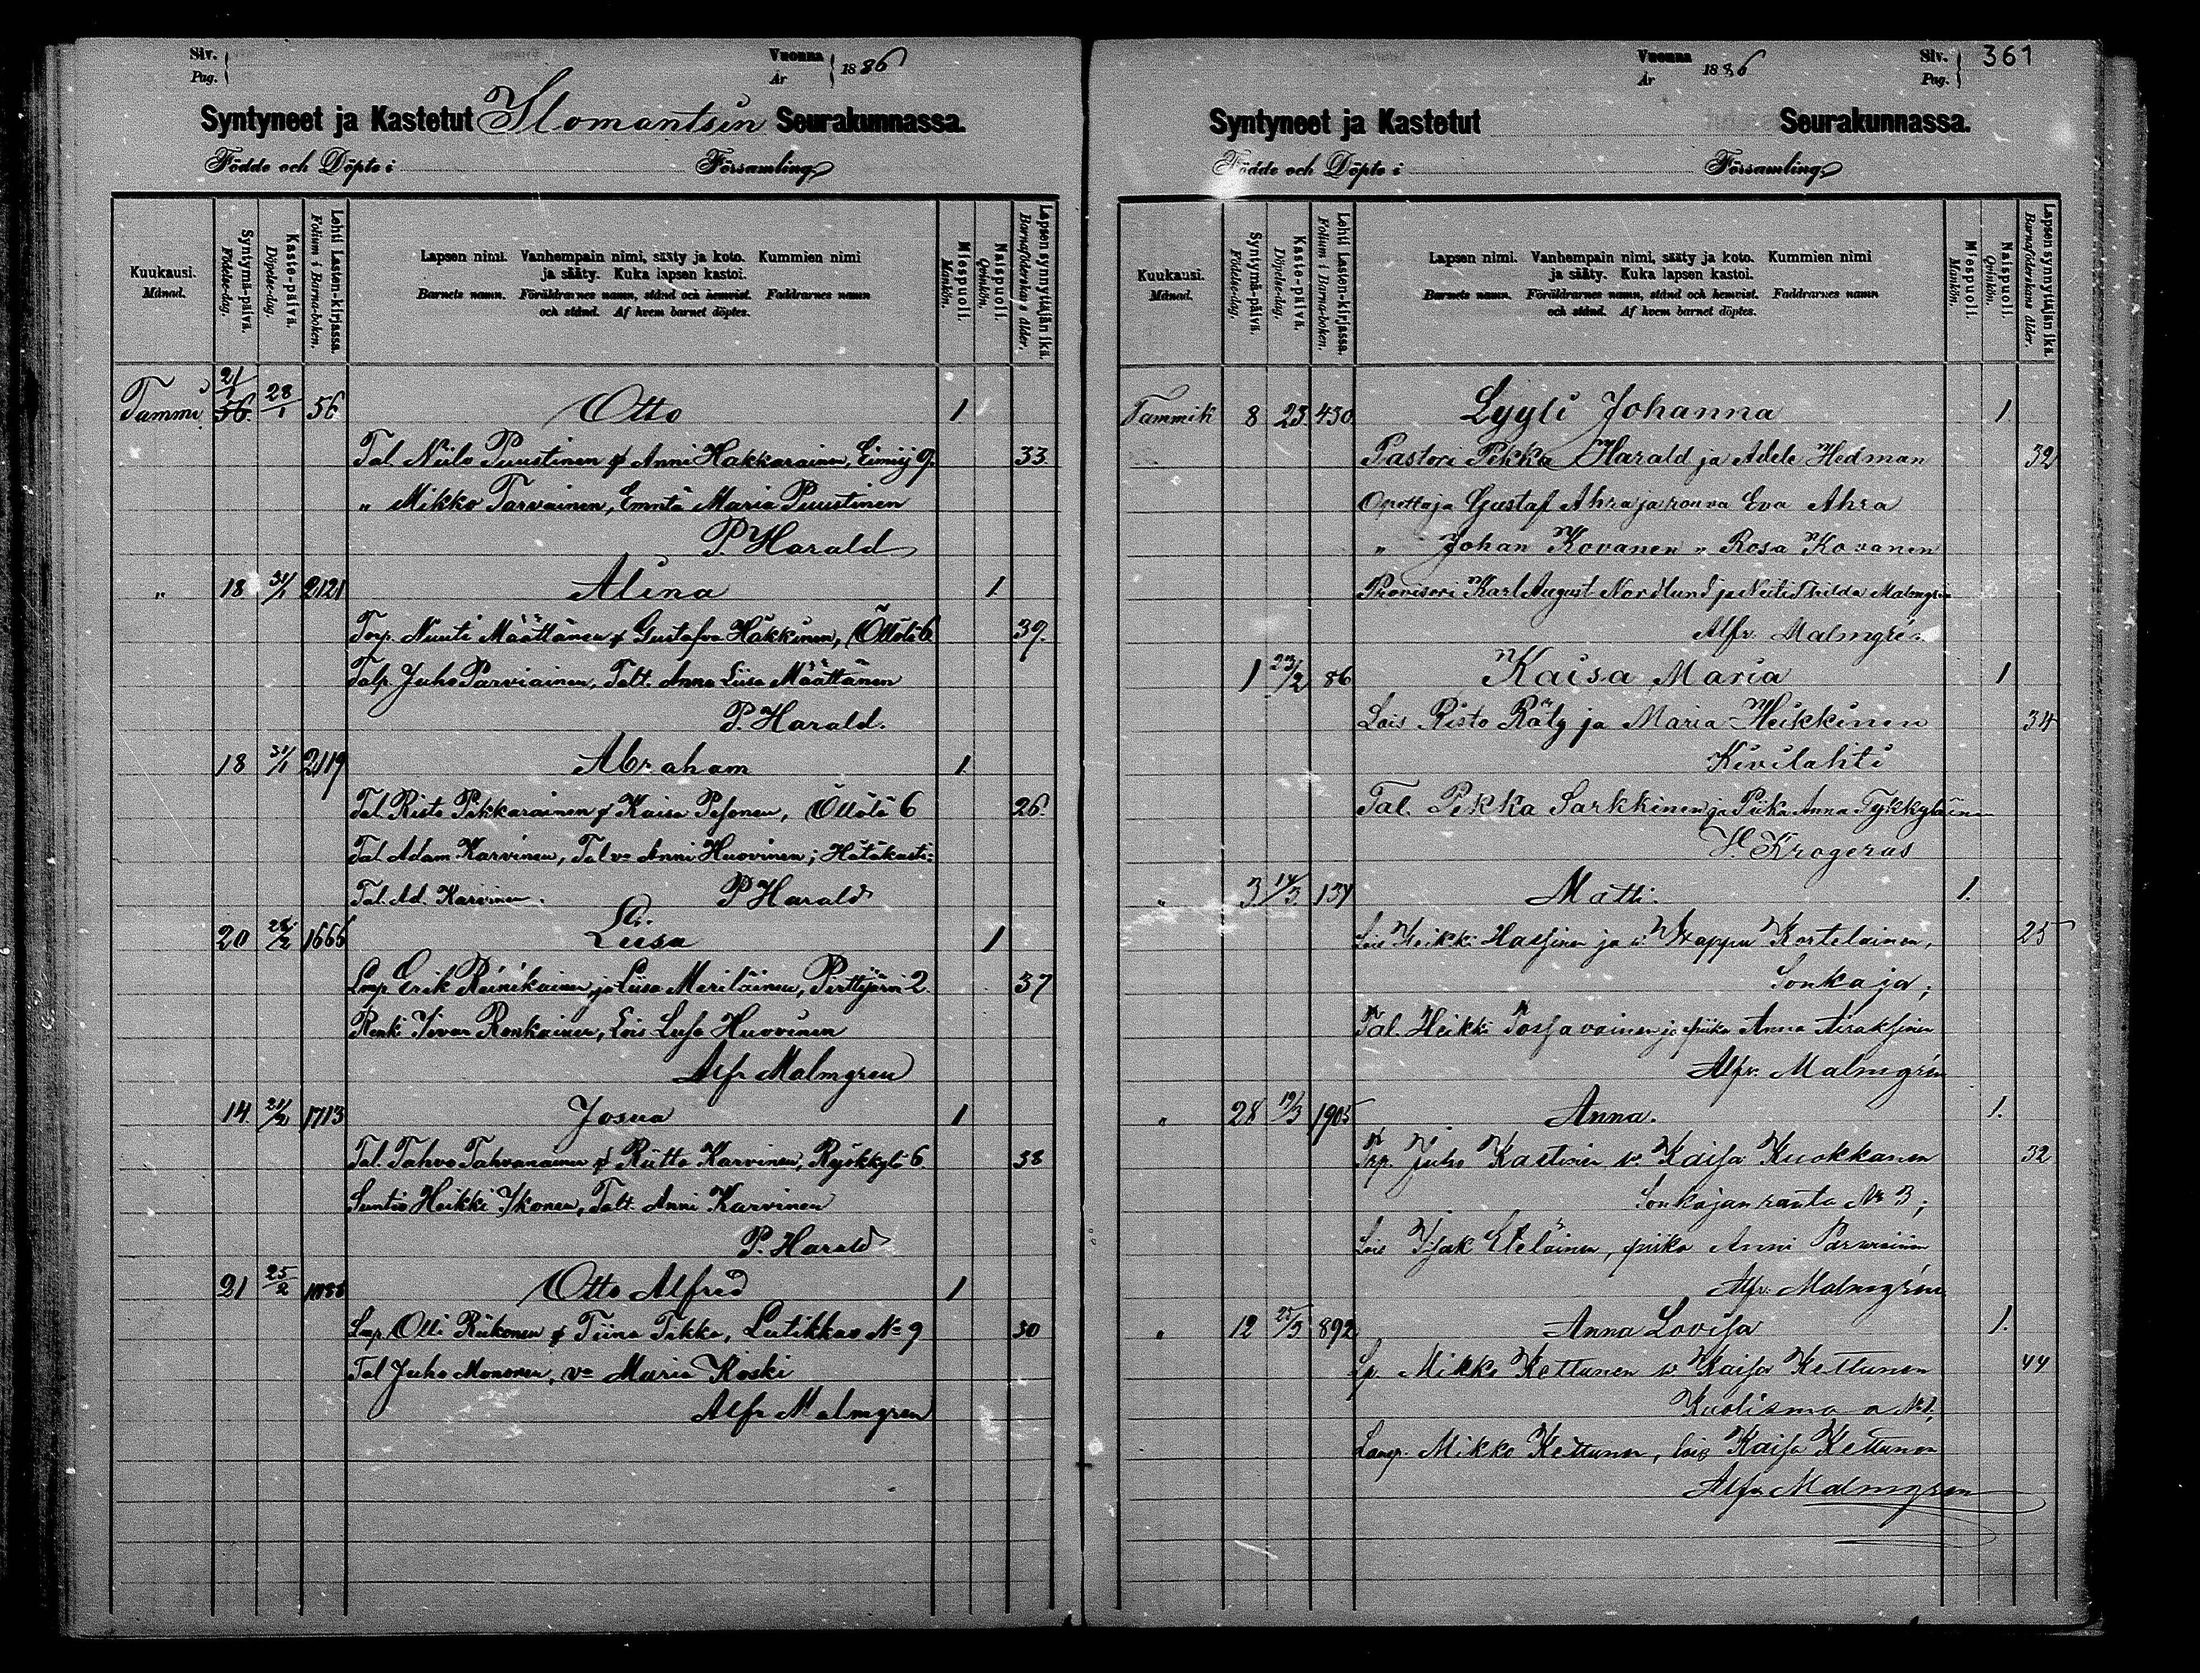 Siv.
Pag.
Vuonna
År
1886
Syntyneet ja Kastetut Ilomantsin Seurakunnassa.
Födde och Döpte i Församling
Kuukausi.
Månad.
Syntymä-päivä.
Födelse-dag.
Kaste-päivä.
Döpelse-dag.
Lehti Lasten-kirjassa.
Folium i Barna-boken.
Lapsen nimi. Vanhempain nimi, sääty ja koto. Kummien nimi
ja sääty. Kuka lapsen kastoi.
Barnets namn. Föräldrarnes namn, stånd och hemvist. Faddrarnes namn
och stånd. Af hvem barnet döptes.
Miespuoli.
Mankön.
Naispuoli.
Qvinkön.
Lapsen synnyttäjän ikä.
Barnaföderskans ålder.
Tammi 21/1 56. 28/1 56 Otto 1
Tal. Niilo Puustinen & Anni Hakkarainen, 9. 33
" Mikko Tarvainen, Emäntä Maria Puustinen
P. Harald
" 18 31/1 2121 Alina 1
Torp. Nuuti Määttänen & Gustafva Häkkinen, Öllölä 6 39.
Talp. Juho Parviainen, Talt. Anna Liisa Määttänen
P. Harald.
18 31/1 2119 Abraham 1
Tal. Risto Pikkarainen & Kaisa Pesonen, Öllölä 6 26.
Tal. Adam Karvinen, Tal va Anni Huovinen; Hätäkasti-
Tal. Ad. Karvinen. P Harald
20 1666 Liisa 1
Lmp Erik Reinikainen ja Liisa Meriläinen, Perttijärvi 2 37
Renki Iivar Ronkainen, Lois Huovinen
Alfr Malmgren
14. 21/2 1713 Josua 1
Tal. Tahvo Tahvanainen & Riitta Karvinen, Ryökkylä 6. 38
Suntio Heikki Ikonen, Talt. Anni Karvinen
P. Harald
21 25/2 Otto Alfred 1
Lmp. Olli Riikonen & Tiina Tikka, Lutikkav No 9 30
Tal Juho Mononen, va Maria Koski
Alfr Malmgren
Vuonna
År
1886
Siv.
Pag.
361
Syntyneet ja Kastetut Seurakunnassa.
Födde och Döpte i Församling
Kuukausi.
Månad.
Syntymä-päivä.
Födelse-dag.
Kaste-päivä.
Döpelse-dag.
Lehti Lasten-kirjassa.
Folium i Barna-boken.
Lapsen nimi. Vanhempain nimi, sääty ja koto. Kummien nimi
ja sääty. Kuka lapsen kastoi.
Barnets namn. Föräldrarnes namn, stånd och hemvist. Faddrarnes namn
och stånd. Af hvem barnet döptes.
Miespuoli.
Mankön.
Naispuoli.
Qvinkön.
Lapsen synnyttäjän ikä.
Barnaföderskans ålder.
Tammik 8 23. 430 Lyyli Johanna 1.
Pastori Pekka Harald ja Adele Hedman 32
Opettaja Gustaf Ahra ja rouva Eva Ahra
" Johan Kovanen " Rosa Kovanen
Provisori Karl August Nordlund ja Neiti Thilda Malmgrén
Alfr. Malmgrén
1 23/2 86 Kaisa Maria 1
Lois Risto Räty ja Maria Heikkinen 34
Kivilahti
Tal. Pekka Sarkkinen ja Piika Anna Tykkyläinen
H. Krogerus
" 3 14/3 134 Matti. 1.
Lois Heikki Hassinen ja v. Wappu Kortelainen, 25
Sonkaja;
Tal. Heikki Tossavainen ja piika Anna Airaksinen
Alfr. Malmgrén
" 28 19/3 1905 Anna. 1.
Trp. Juho Kastinen v. Kaisa Kuokkanen 32
Sonkajanranta No 3;
Lois Isak Eteläinen, piika Anni Parviainen
Alfr. Malmgrén
" 12 25/3 892 Anna Lovisa 1.
Lp. Mikko Kettunen v. Kaisa Kettunen 44
Kuolismaa No 1,
Lamp. Mikko Kettunen, lois Kaisa Kettunen
Alfr Malmgrén